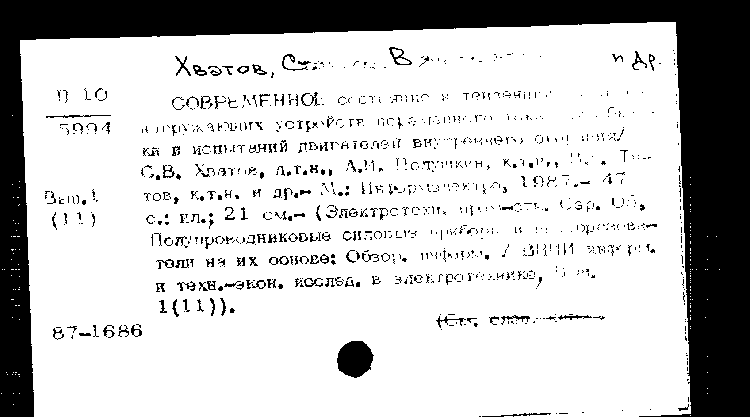 Хватов, С В и др.
П 10
СОВРЕМЕННОЕ состояние и тенденции
5994
нагружающих устройств переменного тока
ки и испытаний двигателей внутреннего сгорания/
С.В. Хватов, д.т.н., А.И. Получкин, к.т.н., Ти-
Вып.1
тов, к.т.н. и др.- М.: Информэлектро, 1987.- 47
(11)
с.: ил.; 21 см.- (Электротехн. пром-сть. Сер. Об,
Полупроводниковые силовые приборы и преобразова-
тели на их основе: Обзор. информ. / ВНИИ информ.
и техн.-экон. исслед. в электротехнике, Вып.
1(11)).
87-1686